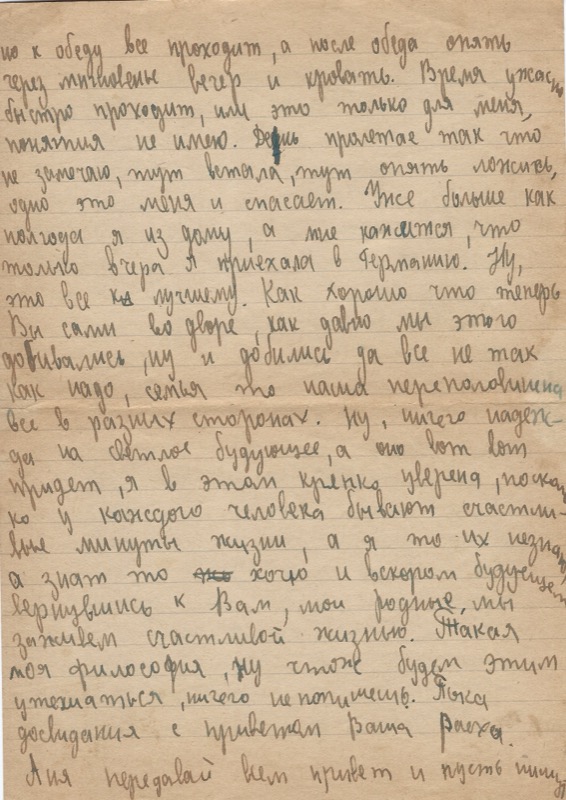 но к обеду все проходит, а после обеда опять
через мгновенье вечер и кровать. Время ужасно
быстро проходит, или это только для меня,
понятия не имею. День пролетае так что
не замечаю, тут встала, тут опять ложись,
одно это меня и спасает. Уже больше как
полгода я из дому, а мне кажится, что
только вчера я приехала в Германию. Ну,
это все к лучшему. Как хорошо что теперь
Вы сами во дворе, как давно мы этого
добивались, ну и добились да все не так
как надо, семья то наша переполовинена
все в разных сторонах. Ну, ничего надеж-
да на светлое будующее, а оно вот вот
придет, я в этом крепко уверена, поскол
ко у каждого человека бывают счастли-
вые минуты жизни, а я то их незнаю,
а знат то хочю и вскором будующем
вернувшись к Вам, мои родные, мы
заживем счастливой жизнью. Такая
моя философия, ну чтоже будем этим
утехиаться, ничего непопишешь. Пока
досвидания с приветом Ваша
Аня передавай всем привет и пусть пишут